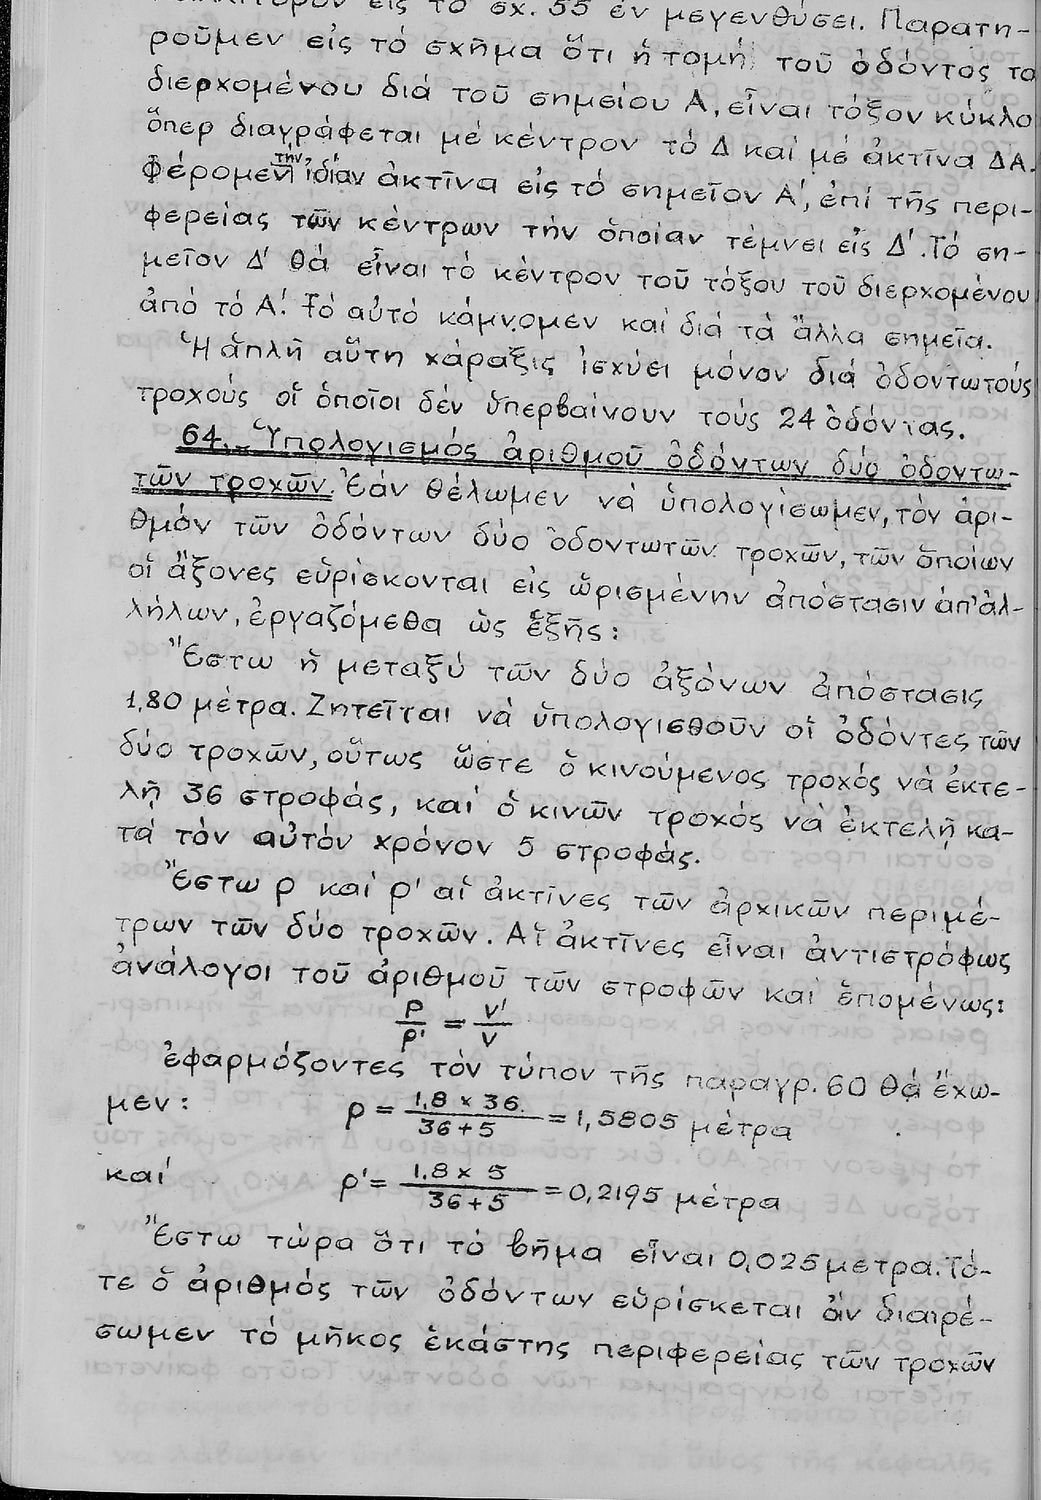 εἰς τό σχ. 55 ἐν μεγενθύσει. Παρατη-
ροῦμεν εἰς τό σχῆμα ὅτι ἡ τομή τοῦ ὀδόντος το
διερχομένου διά τοῦ σημείου Α, εἶναι τόξον κύκλο
ὅπερ διαγράφεται μέ κέντρον τό Δ καί μέ ἀκτῖνα ΔΑ.
Φέρομεν τήν ἰδίαν ἀκτῖνα εἰς τό σημεῖον Α', ἐπί τῆς περι-
φερείας τῶν κέντρων τήν ὁποίαν τέμνει εἰς Δ'. Τό ση-
μεῖον Δ' θά εἶναι τό κέντρον τοῦ τόξου τοῦ διερχομένου
ἀπό τό Α'. Τό αὐτό κάμνομεν καί διά τά ἄλλα σημεῖα.
Ἡ ἁπλῆ αὕτη χάραξις ἰσχύει μόνον διά ὀδοντωτούς
τροχούς οἱ ὁποῖοι δέν ὑπερβαίνουν τούς 24 ὀδόντας.
64.- Ὑπολογισμός ἀριθμοῦ ὀδόντων δύο ὀδοντω-
τῶν τροχῶν. Ἐάν θέλωμεν νά ὑπολογίσωμεν, τόν ἀρι-
θμόν τῶν ὀδόντων δύο ὀδοντωτῶν τροχῶν, τῶν ὁποίων
οἱ ἄξονες εὑρίσκονται εἰς ὡρισμένην ἀπόστασιν ἀπ' ἀλ-
λήλων, ἐργαζόμεθα ὡς ἑξῆς:
Ἔστω ἡ μεταξύ τῶν δύο ἀξόνων ἀπόστασις
1,80 μέτρα. Ζητεῖται νά ὑπολογισθοῦν οἱ ὀδόντες τῶν
δύο τροχῶν, οὕτως ὥστε ὁ κινούμενος τροχός νά ἐκτε-
λῇ 36 στροφάς, καί ὁ κινῶν τροχός νά ἐκτελῇ κα-
τά τόν αὐτόν χρόνον 5 στροφάς.
Ἔστω ρ καί ρ' αἱ ἀκτῖνες τῶν ἀρχικῶν περιμέ-
τρων τῶν δύο τροχῶν. Αἱ ἀκτῖνες εἶναι ἀντιστρόφως
ἀνάλογοι τοῦ ἀριθμοῦ τῶν στροφῶν καί ἑπομένως:
ρ/ρ' = ν'/ν
ἐφαρμόζοντες τόν τύπον τῆς παραγρ. 60 θά ἔχω-
μεν: ρ = 1,8 x 36/36+5 = 1,5805 μέτρα
καί ρ' = 1,8 x 5/36+5 = 0,2195 μέτρα
Ἔστω τώρα ὅτι τό βῆμα εἶναι 0,025 μετρα. Τό-
τε ὁ ἀριθμός τῶν ὀδόντων εὑρίσκεται ἄν διαιρέ-
σωμεν τό μῆκος ἑκάστης περιφερείας τῶν τροχῶν